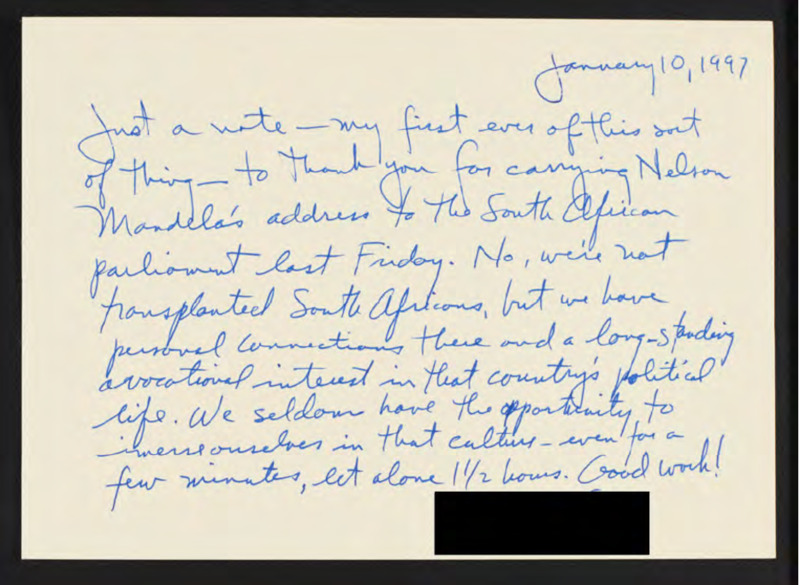 January 10, 1997
Just a note — my first ever of this sort
of thing — to thank you for carrying Nelson
Mandela's address to the South African
parliament last Friday. No, we're not
transplanted South Africans, but we have
personal connections there and a long-standing
avocational interest in that country's political
life. We seldom have the opportunity to
imerse ourselves in that culture - even for a
few minutes, let alone 1 1/2 hours. Good work!